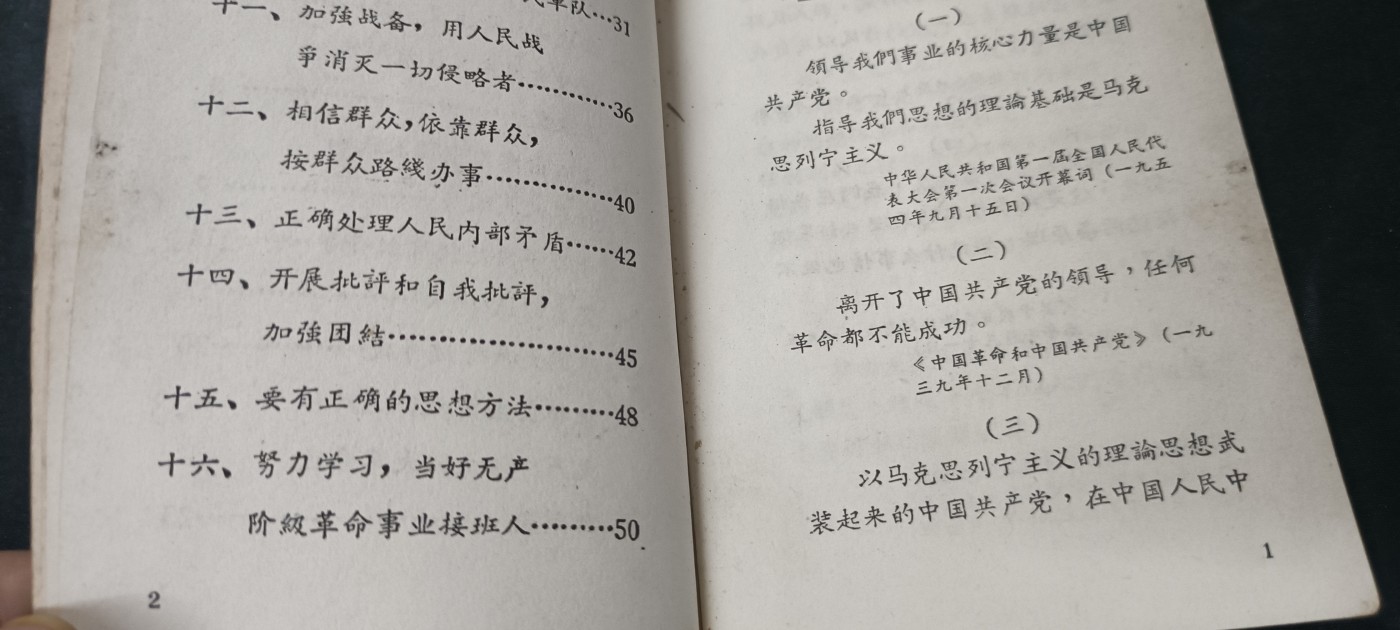 军队…31
十一、加強战备，用人民战
爭消灭一切侵略者…………36
十二、相信群众，依靠群众，
按群众路綫办事……………40
十三、正确处理人民内部矛盾……42
十四、开展批評和自我批評，
加強团結……………………45
十五、要有正确的思想方法………48
十六、努力学习，当好无产
阶級革命事业接班人………50
2
（一）
领导我們事业的核心力量是中国
共产党。
指导我們思想的理論基础是马克
思列宁主义。
中华人民共和国第一届全国人民代
表大会第一次会议开幕词（一九五
四年九月十五日）
（二）
离开了中国共产党的领导，任何
革命都不能成功。
《中国革命和中国共产党》（一九
三九年十二月）
（三）
以马克思列宁主义的理論思想武
装起来的中国共产党，在中国人民中
1